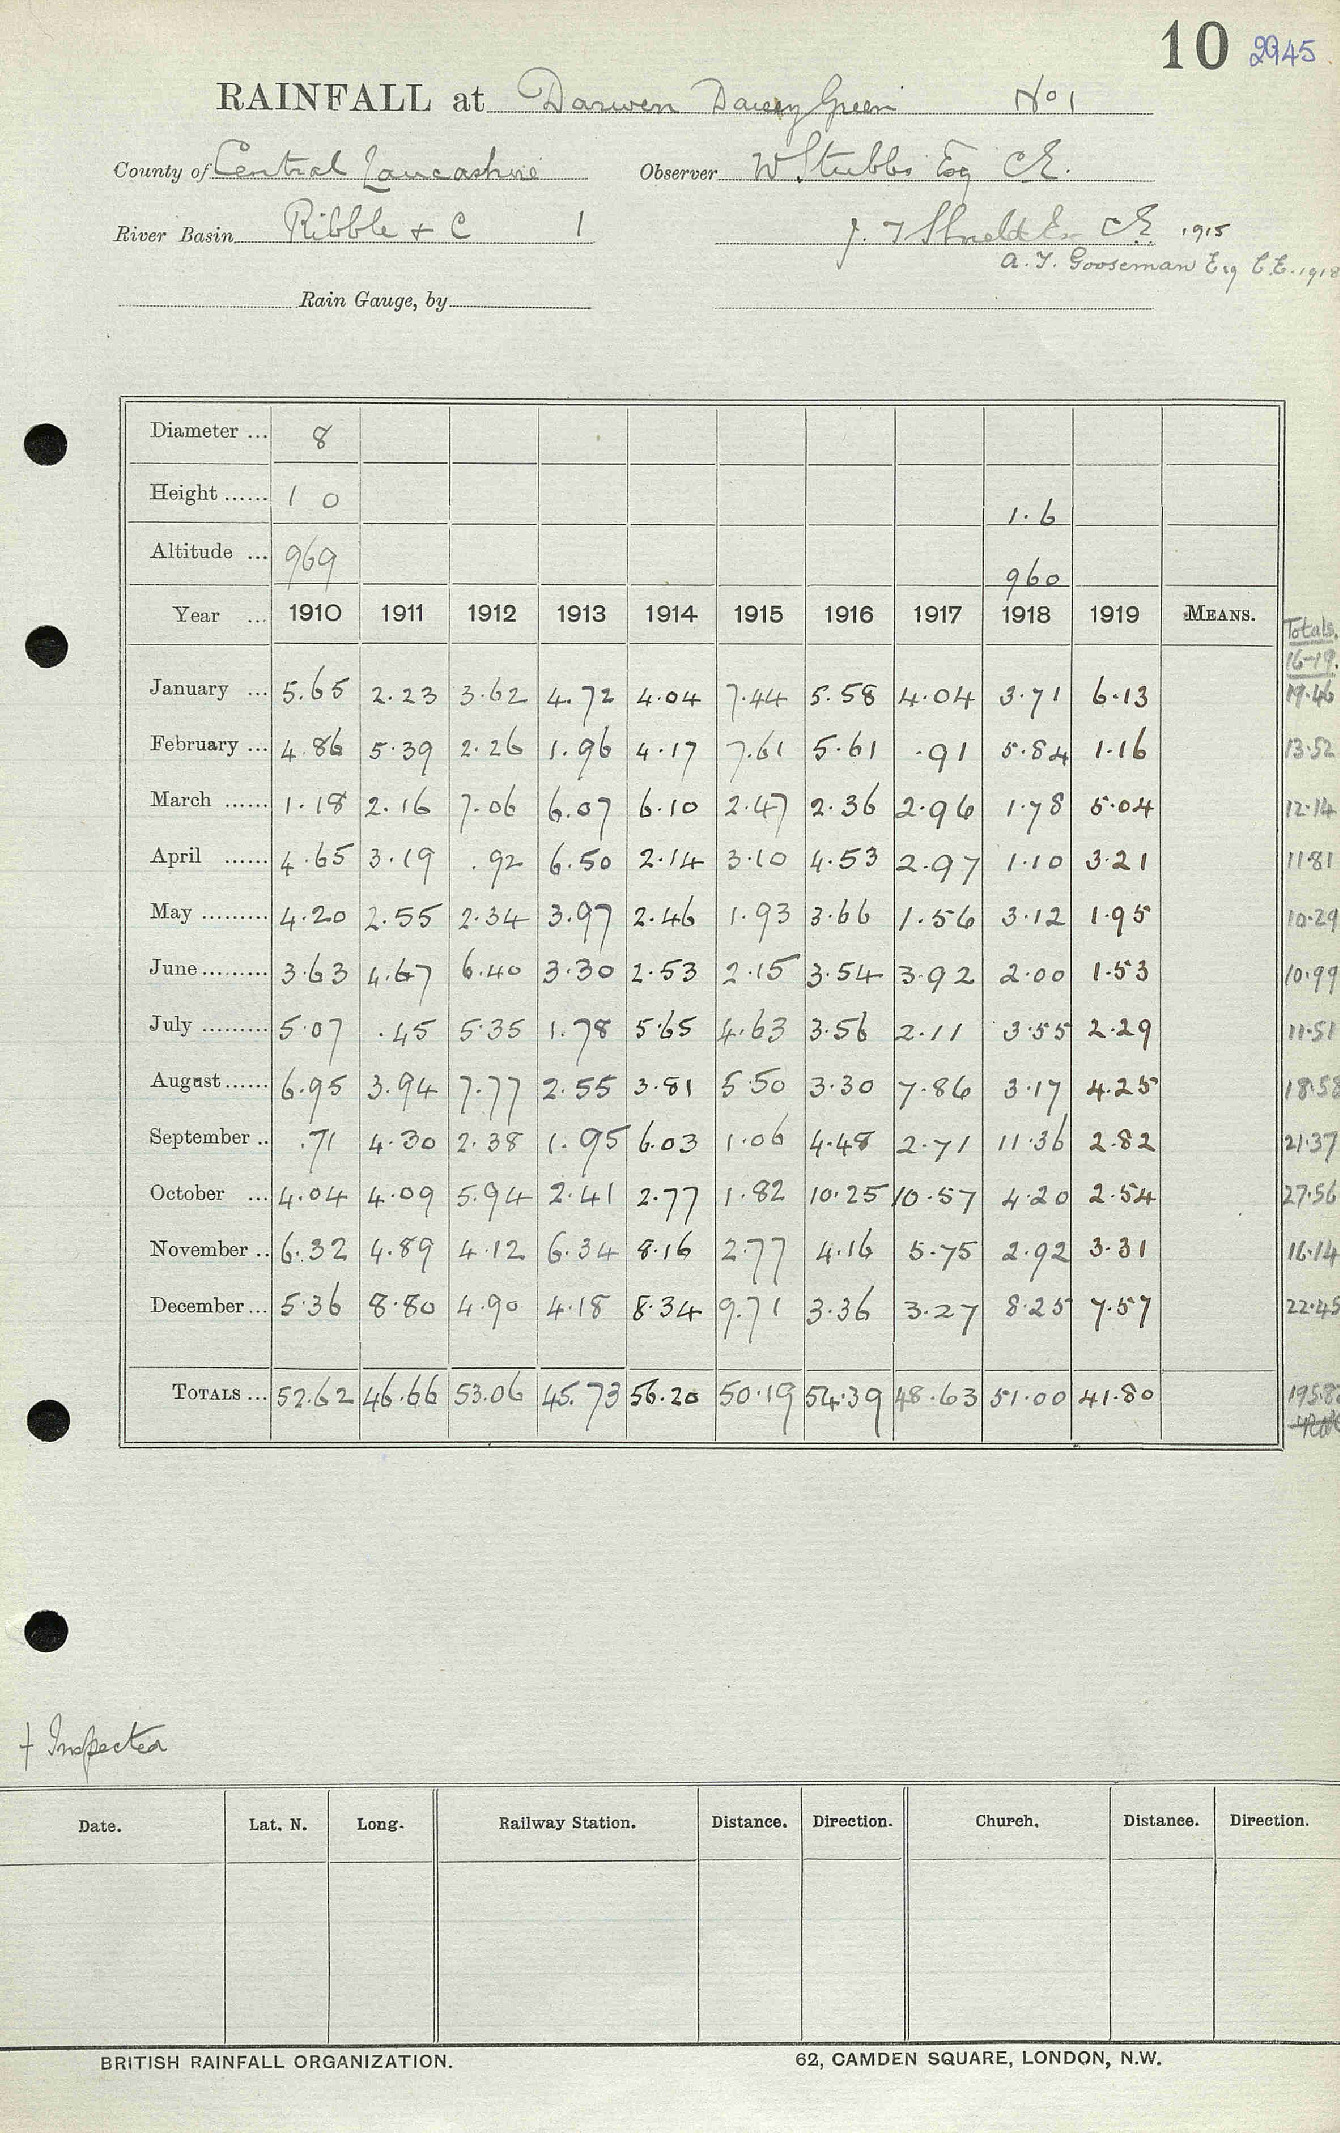 10 2945
RAINFALL at Darwen Daisy Green No 1
County of Central Lancashire Observer W. Stubbs Esq C.E.
River Basin Ribble + C 1 J. T C.E 1915
A. T. Gooseman Esq C.E. 1918
Rain Gauge, by
Diameter ... 8
Height ...... 1 0 1.6
Altitude ... 969 960
Year ... 1910 1911 1912 1913 1914 1915 1916 1917 1918 1919 MEANS. Totals.
16-19.
January ... 5.65 2.23 3.62 4.72 4.04 7.44 5.58 4.04 3.71 6.13 19.46
February ... 4.86 5.39 2.26 1.96 4.17 7.61 5.61 .91 5.84 1.16 13.52
March ...... 1.18 2.16 7.06 6.07 6.10 2.47 2.36 2.96 1.78 5.04 12.14
April ...... 4.65 3.19 .92 6.50 2.14 3.10 4.53 2.97 1.10 3.21 11.81
May ......... 4.20 2.55 2.34 3.97 2.46 1.93 3.66 1.56 3.12 1.95 10.29
June ......... 3.63 4.67 6.40 3.30 2.53 2.15 3.54 3.92 2.00 1.53 10.99
July ......... 5.07 .45 5.35 1.78 5.65 4.63 3.56 2.11 3.55 2.29 11.51
August ...... 6.95 3.94 7.77 2.55 3.81 5.50 3.30 7.86 3.17 4.25 18.58
September .. .71 4.30 2.38 1.95 6.03 1.06 4.48 2.71 11.36 2.82 21.37
October ... 4.04 4.09 5.94 2.41 2.77 1.82 10.25 10.57 4.20 2.54 27.56
November .. 6.32 4.89 4.12 6.34 8.16 2.77 4.16 5.75 2.92 3.31 16.14
December ... 5.36 8.80 4.90 4.18 8.34 9.71 3.36 3.27 8.25 7.57 22.45
TOTALS ... 52.62 46.66 53.06 45.73 56.20 50.19 54.39 48.63 51.00 41.80 195.82
† Inspected
Date. Lat. N. Long. Railway Station. Distance. Direction. Church. Distance. Direction.
BRITISH RAINFALL ORGANIZATION. 62, CAMDEN SQUARE, LONDON, N.W.